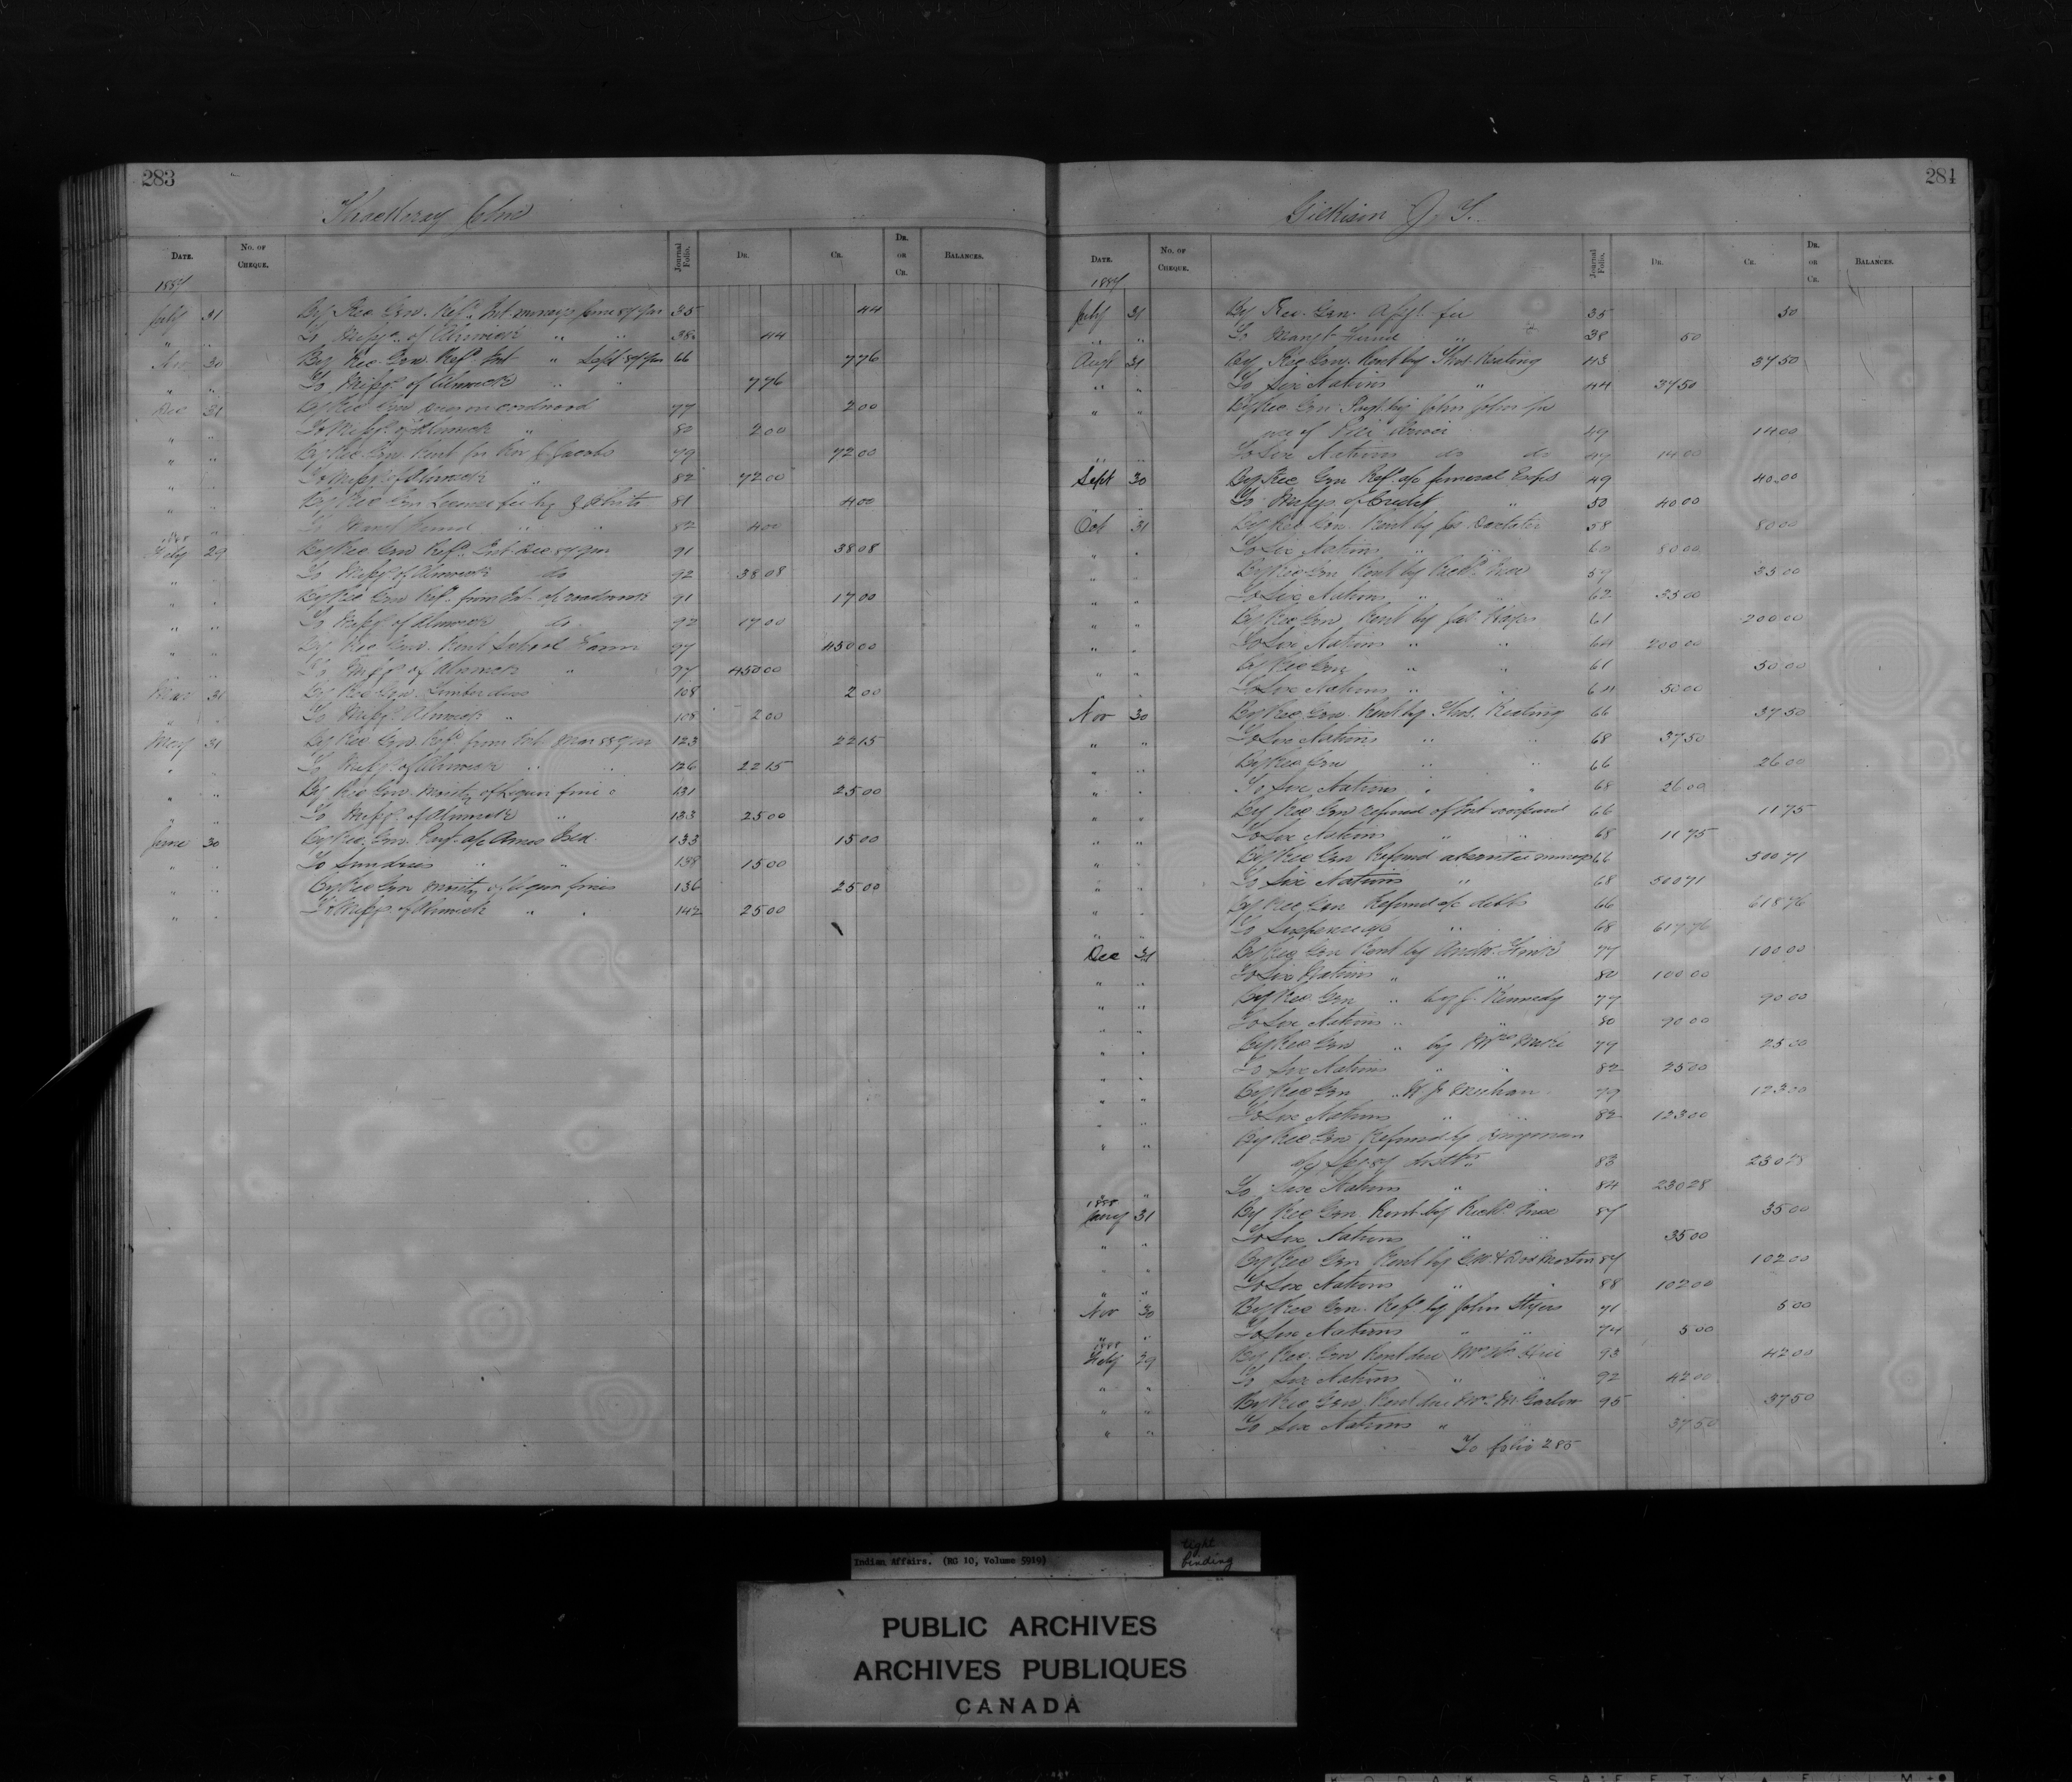 283
Thackeray Jno
DATE.
No. OF CHEQUE.
Journal Folio.
DR.
CR.
DR. OR CR.
BALANCES.
1887
July 31 By Rec. Gen. Ref. Int. moneys June 87 35 44
" " To Missgs. of Alnwick " " 38 44
Nov 30 By Rec. Gen. Ref. Int " Sept 87 66 776
" " To Missgs. of Alnwick " " 776
Dec 31 By Rec Gen dues on cordwood 77 200
" " To Missgs. of Alnwick " 80 200
" " By Rec. Gen. Rent for Rev Jacobs 79 7200
" " To Missgs. of Alnwick " 82 7200
" " By Rec Gen License fee by White 81 400
" " To Mangt Fund " " 82 400
1888
Feby 29 By Rec Gen Ref. Int. Dec 87 91 3808
" " To Missgs. of Alnwick do 92 3808
" " By Rec Gen Ref. from Int. roadwork 91 1700
" " To Missgs. of Alnwick do 92 1700
" " By Rec Gen. Rent School Farm 97 45000
" " To Missgs. of Alnwick " 97 45000
Mar 31 By Rec Gen. Timber dues 108 200
" " To Missgs. Alnwick " 108 200
May 31 By Rec Gen Ref. from Int. Mar 88 123 2215
" " To Missgs. of Alnwick " " 126 2215
" " By Rec Gen. Moiety of Liquor fine 131 2500
" " To Missgs. of Alnwick " 133 2500
June 30 By Rec. Gen. a/c Amos Bed. 133 1500
" " To Sundries " " 138 1500
" " By Rec Gen Moiety of Liquor fines 136 2500
" " To Missgs. of Alnwick " " 142 2500
284
Gilkison J. T.
DATE.
No. OF CHEQUE.
Journal Folio.
DR.
CR.
DR. OR CR.
BALANCES.
1887
July 31 By Rec. Gen. fee 35 50
" " To Mangt Fund " 38 50
Augt 31 By Rec Gen. Rent by Thos. Keating 43 3750
" " To Six Nations " 44 3750
" " By Rec Gen. Payt. by John John for
use of 49 1400
" " To Six Nations do do 47 1400
Sept 30 By Rec Gen Ref. a/c funeral Exps 49 4000
" " To Missgs of Credit " 50 4000
Oct 31 By Rec Gen. Rent by Jas. Doxtater 58 8000
" " To Six Nations " " 60 8000
" " By Rec Gen Rent by Richd. 59 3500
" " To Six Nations " " 62 3500
" " By Rec Gen Rent by Jas. 61 20000
" " To Six Nations " " 64 20000
" " By Rec Gen " " 61 5000
" " To Six Nations " " 64 5000
Nov 30 By Rec. Gen. Rent by Thos. Keating 66 3750
" " To Six Nations " " 68 3750
" " By Rec Gen " " 66 2600
" " To Six Nations " " 68 2600
" " By Rec Gen refund of Int 66 1175
" " To Six Nations " " 68 1175
" " By Rec Gen Refund absentees moneys 66 50071
" " To Six Nations " 68 50071
" " By Rec Gen Refund a/c debts 66 61876
" " To Suspense a/c " 68 61776
Dec 31 By Rec Gen Rent by Andw. 77 10000
" " To Six Nations " " 80 10000
" " By Rec. Gen " by J. Kennedy 77 9000
" " To Six Nations " " 80 9000
" " By Rec Gen " by Mrs 79 2500
" " To Six Nations " " 82 2500
" " By Rec Gen " W J 79 12300
" " To Six Nations " " 82 12300
" " By Rec Gen Refund by
83 23028
" To Six Nations " " 84 23028
1888
Jany 31 By Rec Gen Rent by Richd. 87 3500
" " To Six Nations " " 3500
" " By Rec Gen Rent by 87 10200
" " To Six Nations " " 88 10200
Nov 30 By Rec Gen. Ref. by John Styres 71 500
" " To Six Nations " " 74 500
1888
Feby 29 By Rec. Gen Rent due 93 4200
" " To Six Nations " " 92 4200
" " By Rec Gen Rent due Mrs M. Garlow 95 3750
" " To Six Nations " 3750
To folio 285
Indian Affairs. (RG 10, Volume 5919)
tight binding
PUBLIC ARCHIVES
ARCHIVES PUBLIQUES
CANADA